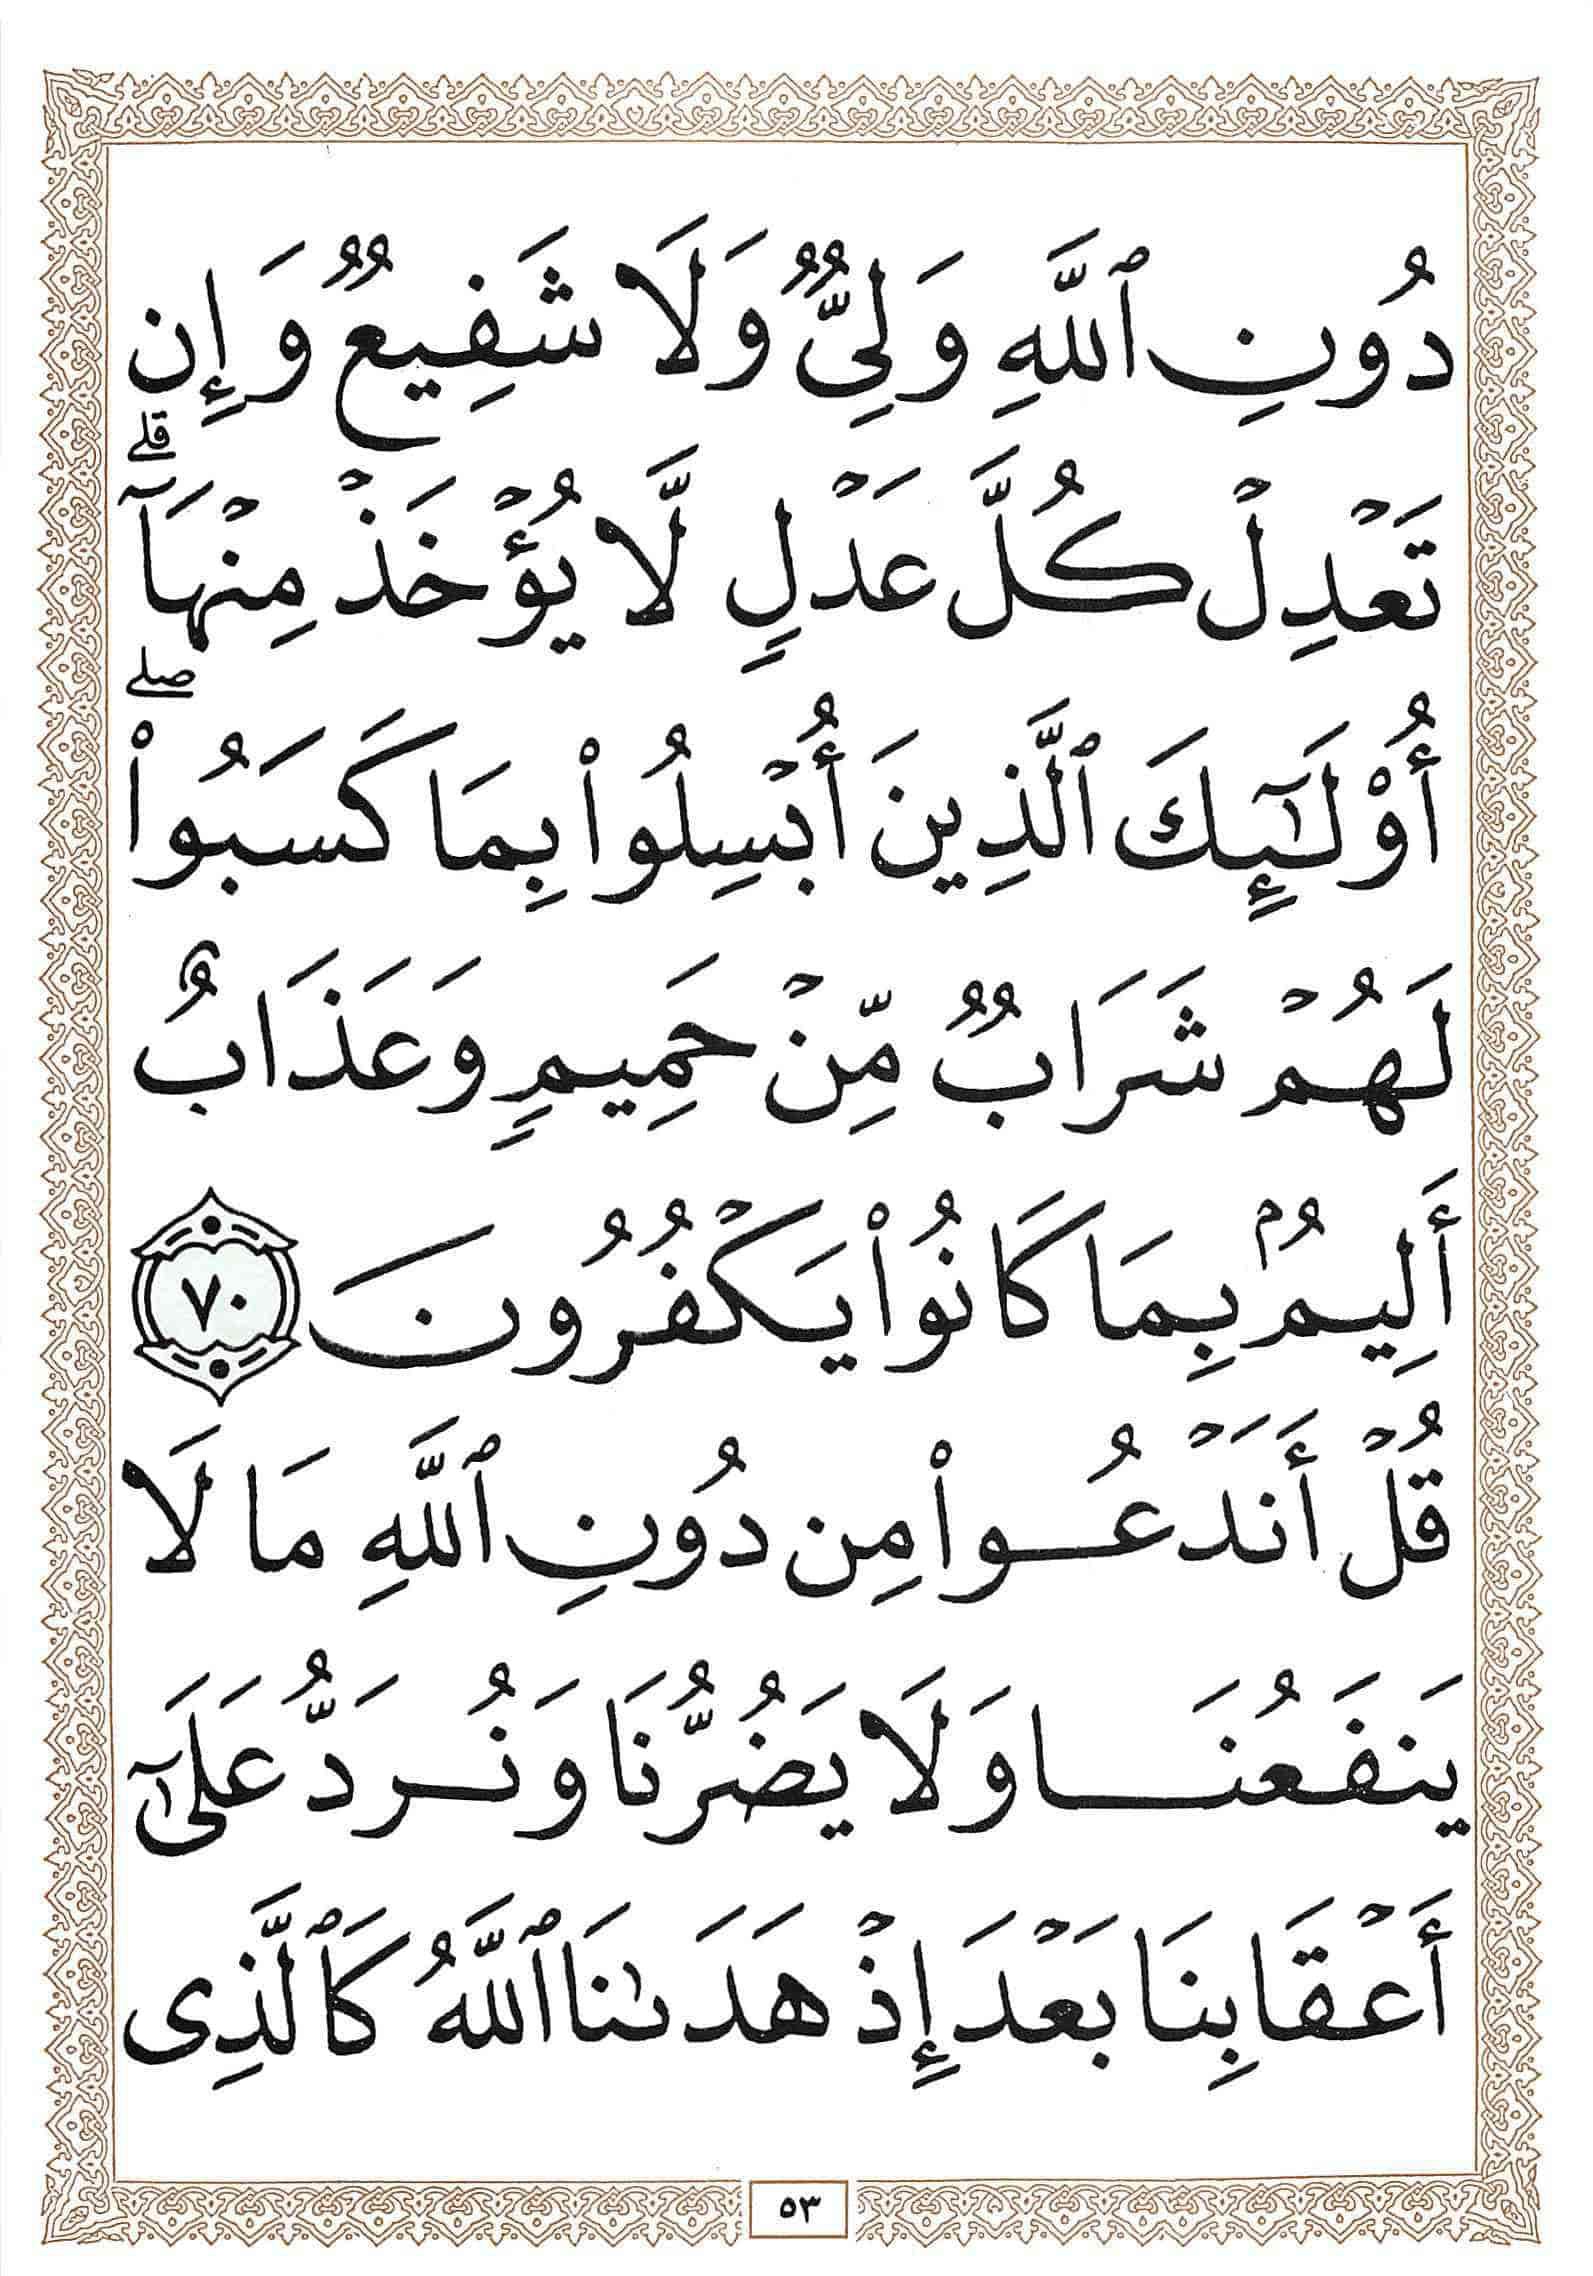 دُونِ ٱللَّهِ وَلِىٌّ وَلَا شَفِيعٌ وَإِن
تَعْدِلْ كُلَّ عَدْلٍ لَّا يُؤْخَذْ مِنْهَآ ۗ
أُو۟لَـٰٓئِكَ ٱلَّذِينَ أُبْسِلُوا۟ بِمَا كَسَبُوا۟ ۖ
لَهُمْ شَرَابٌ مِّنْ حَمِيمٍ وَعَذَابٌ
أَلِيمٌۢ بِمَا كَانُوا۟ يَكْفُرُونَ ٧٠
قُلْ أَنَدْعُوا۟ مِن دُونِ ٱللَّهِ مَا لَا
يَنفَعُنَا وَلَا يَضُرُّنَا وَنُرَدُّ عَلَىٰٓ
أَعْقَابِنَا بَعْدَ إِذْ هَدَىٰنَا ٱللَّهُ كَٱلَّذِى
٥٣